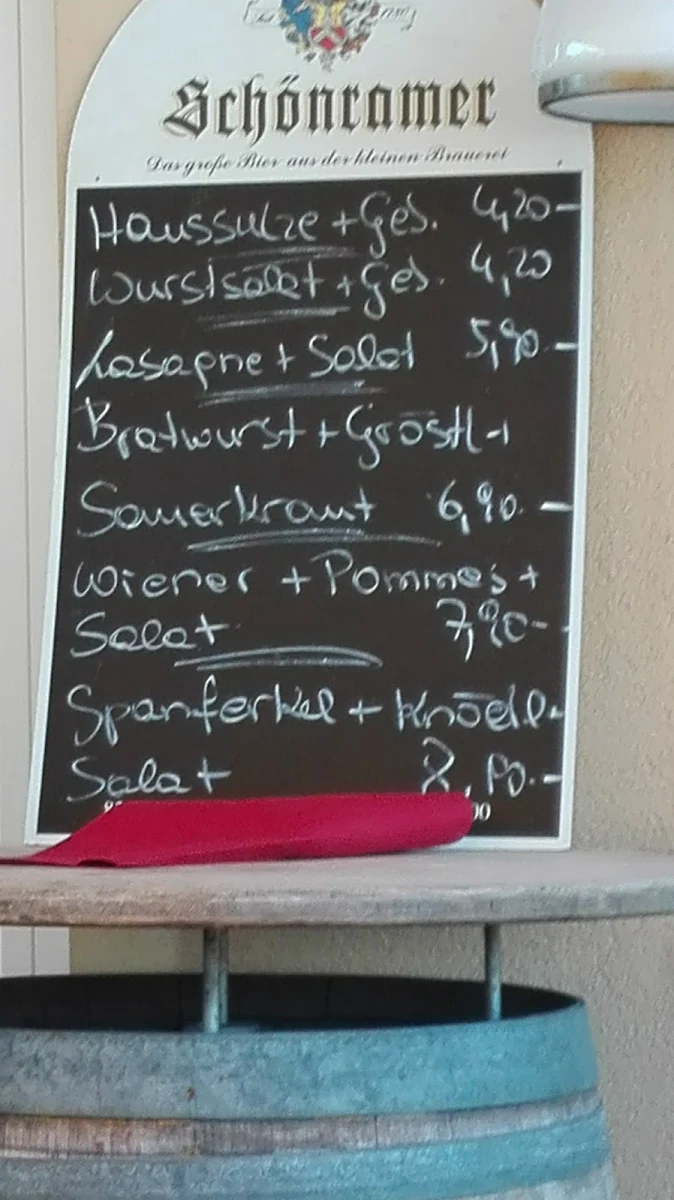 Schönramer
Das große Bier aus der kleinen Brauerei
Haussulze + Geb. 4,20-
Wurstsalat + Geb. 4,20
Lasagne + Salat 5,90.-
Bratwurst + Gröstl +
Sauerkraut 6,90.-
Wiener + Pommes +
Salat 7,90-
Spanferkel + Knödel +
Salat 8,90.-